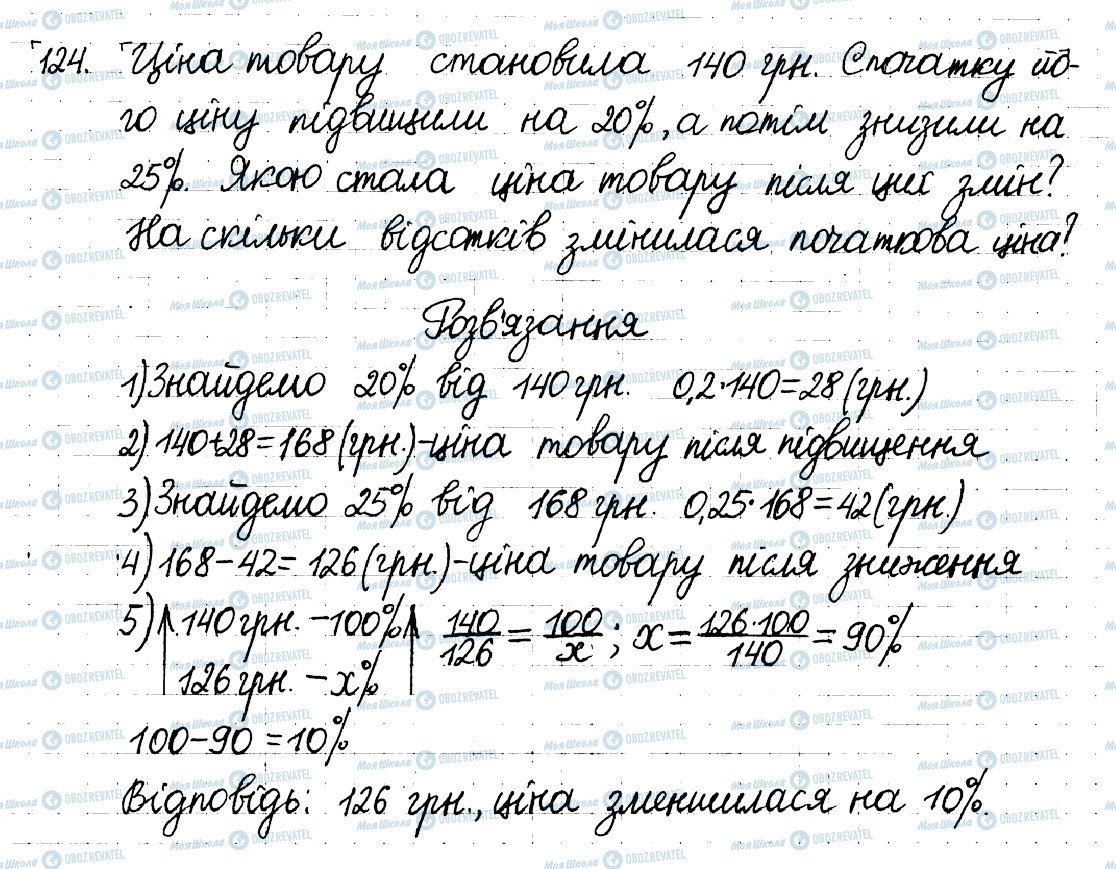 124. Ціна товару становила 140 грн. Спочатку йо-
го ціну підвищили на 20%, а потім знизили на
25%. Якою стала ціна товару після цих змін?
На скільки відсотків змінилася початкова ціна?
Розв'язання
1) Знайдемо 20% від 140 грн. 0,2·140=28 (грн.)
2) 140+28=168 (грн.)-ціна товару після підвищення
3) Знайдемо 25% від 168 грн. 0,25·168=42 (грн.)
4) 168-42=126 (грн.)-ціна товару після зниження
5) 140 грн. -100% 140/126 = 100/x ; x = 126·100/140 = 90%
126 грн. - x%
100-90=10%
Відповідь: 126 грн., ціна зменшилася на 10%.